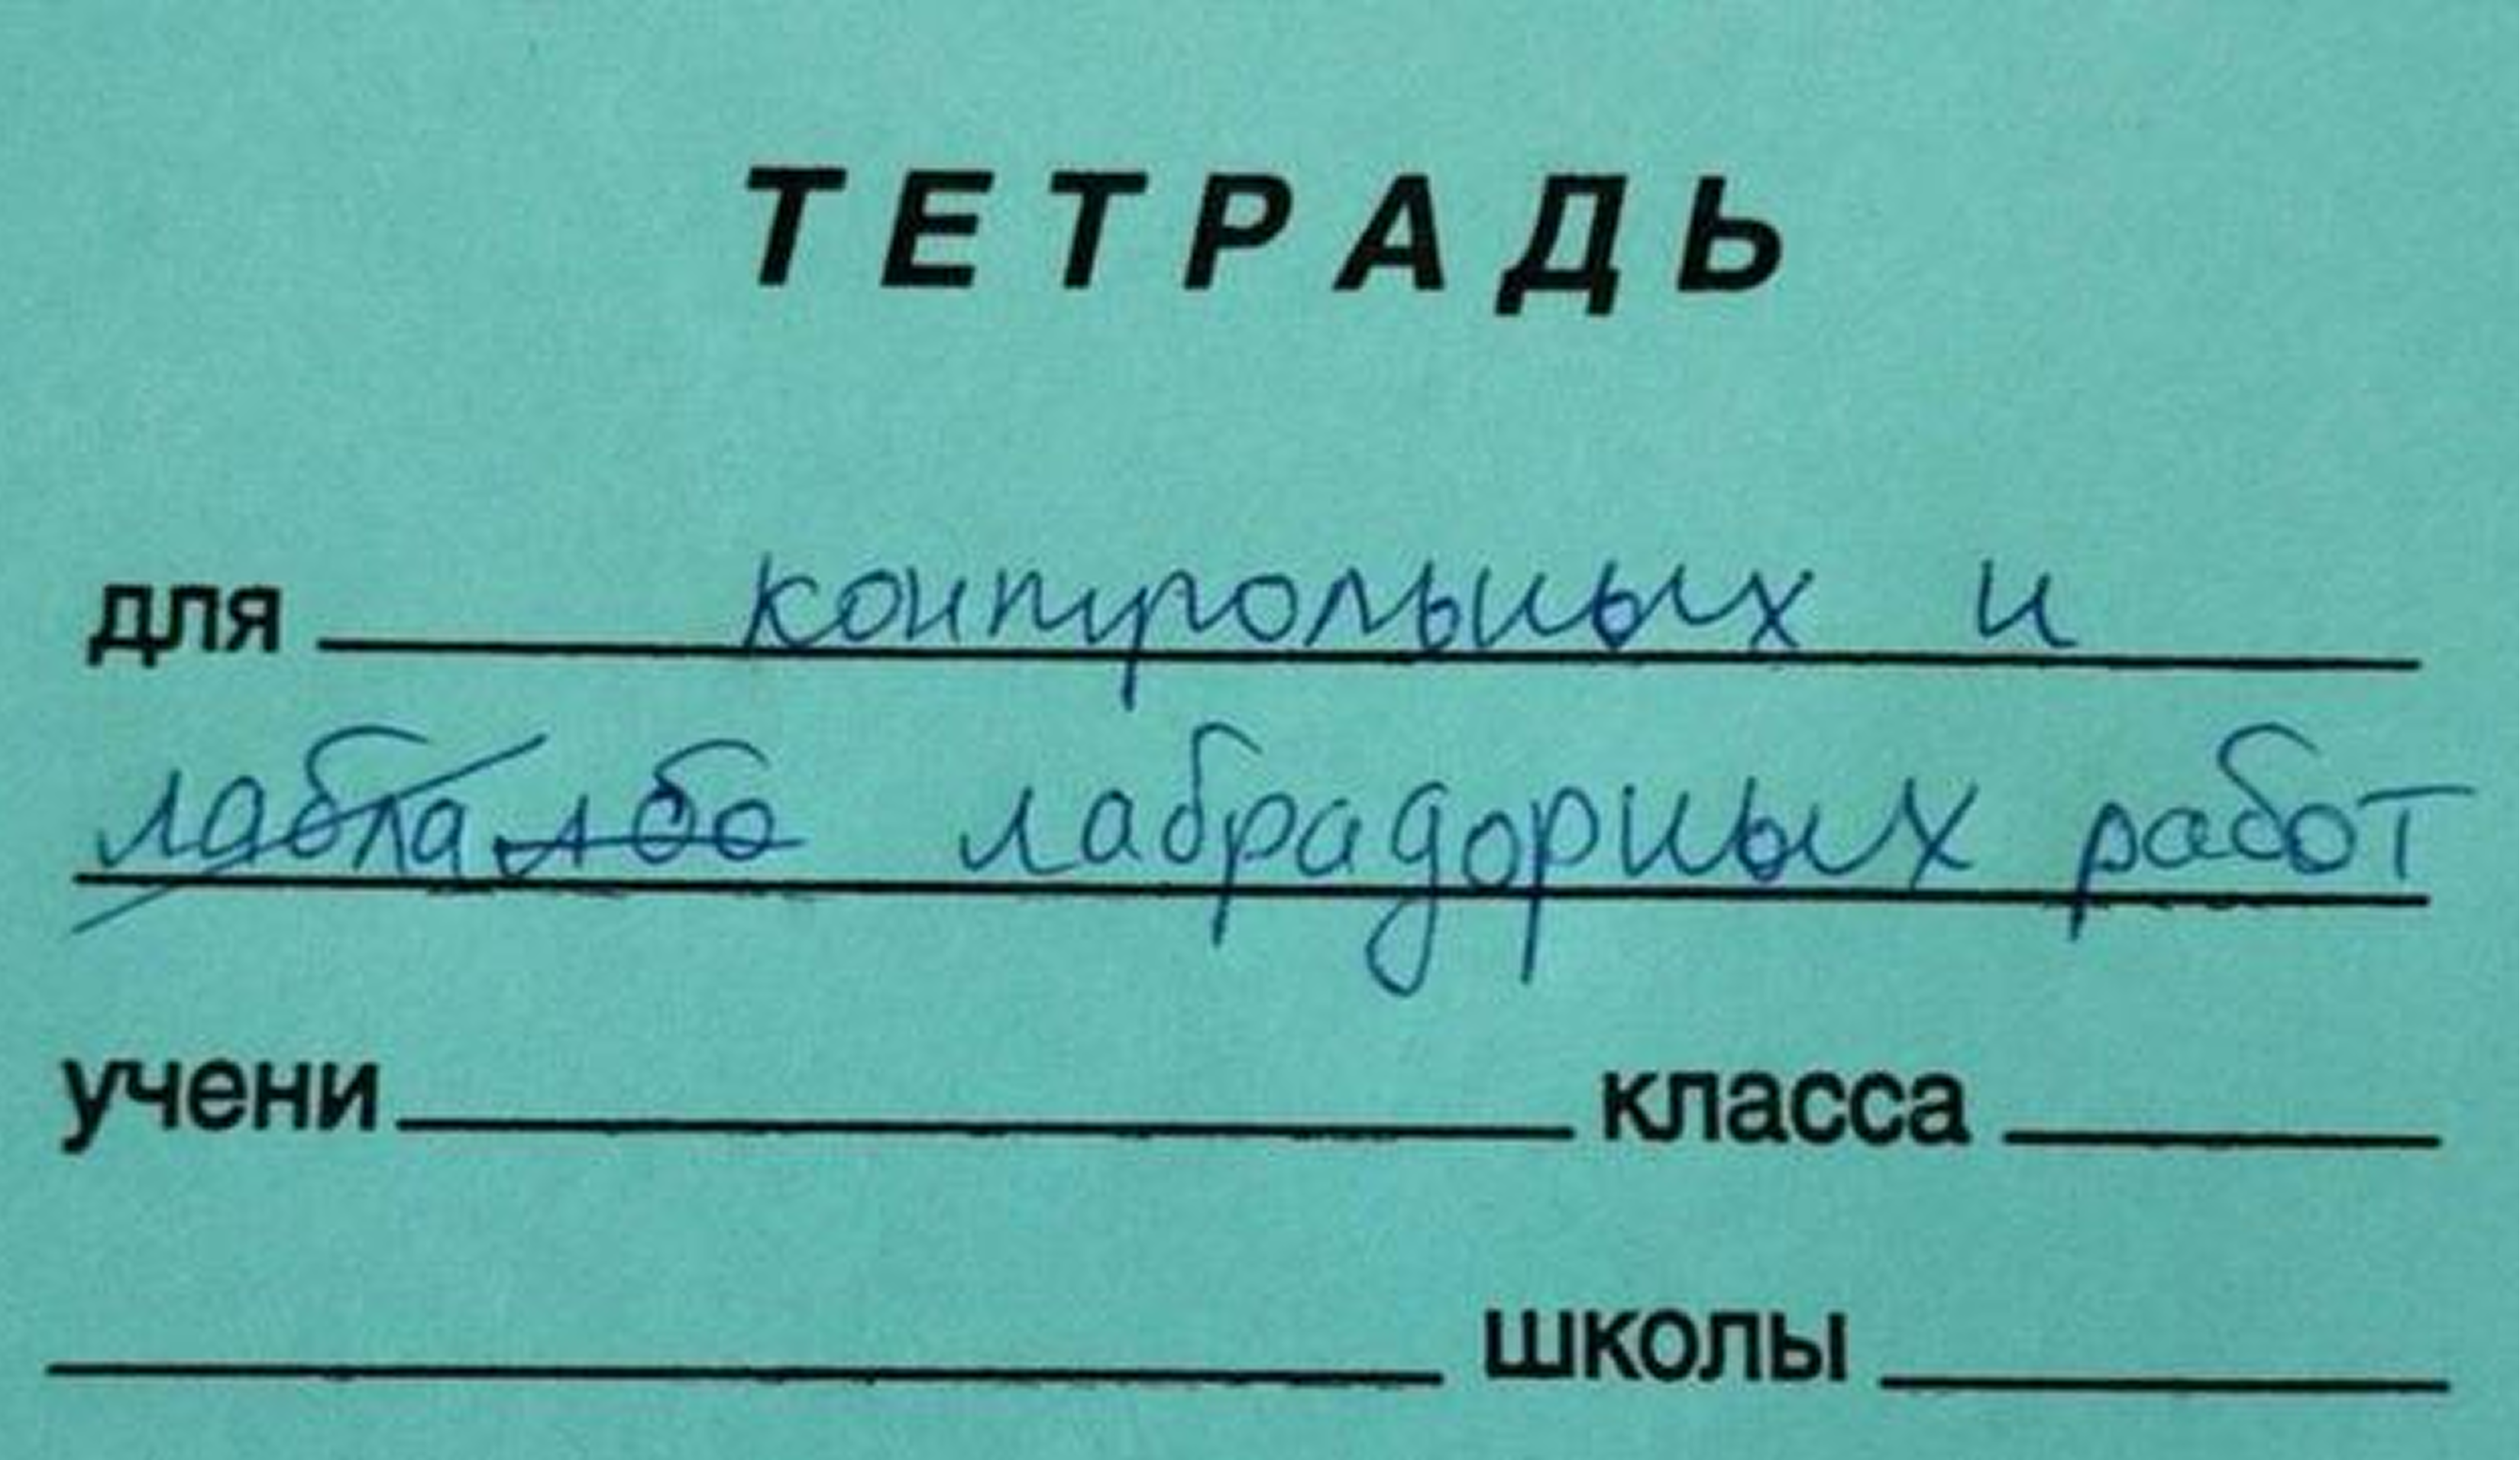 ТЕТРАДЬ
для контрольных и
лабла лбо лабрадорных работ
учени класса
школы